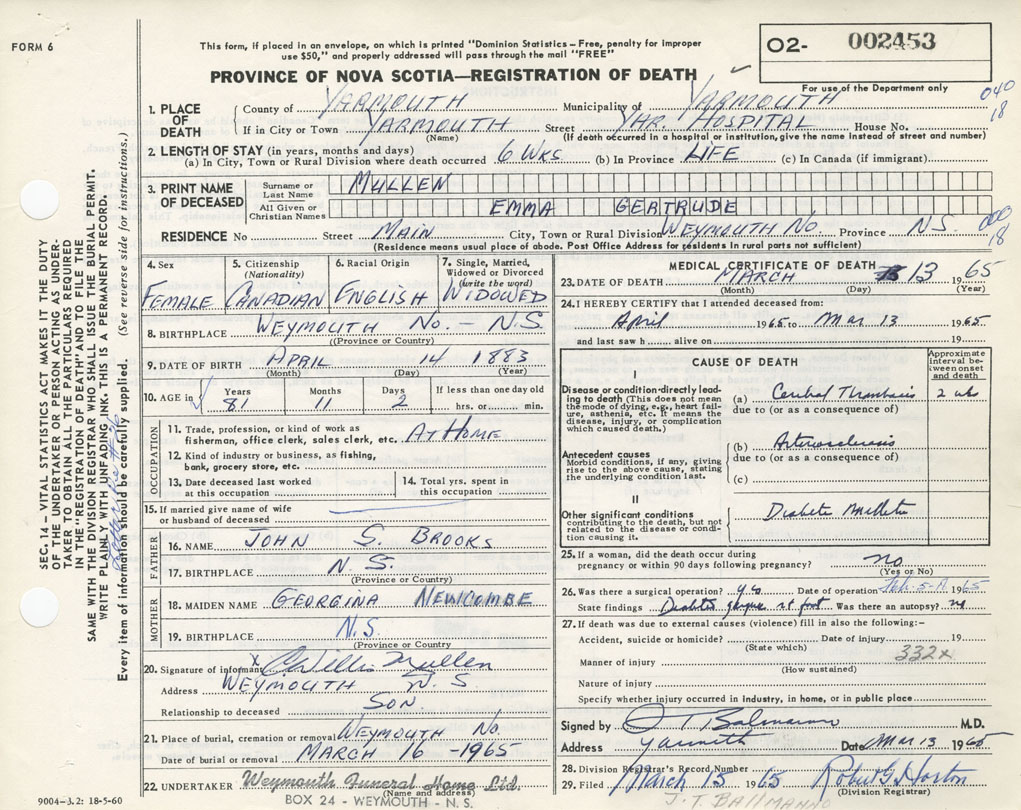 FORM 6
This form, if placed in an envelope, on which is printed "Dominion Statistics – Free, penalty for improper
use $50," and properly addressed will pass through the mail "FREE"
PROVINCE OF NOVA SCOTIA—REGISTRATION OF DEATH
O2- 002453
For use of the Department only
040
18
1. PLACE OF DEATH
County of YARMOUTH Municipality of YARMOUTH
If in City or Town YARMOUTH Street YAR. HOSPITAL House No.
(Name) (If death occurred in a hospital or institution, give the name instead of street and number)
2. LENGTH OF STAY (in years, months and days)
(a) In City, Town or Rural Division where death occurred 6 WKS. (b) In Province LIFE (c) In Canada (if immigrant)
3. PRINT NAME OF DECEASED
Surname or Last Name MULLEN
All Given or Christian Names EMMA GERTRUDE
RESIDENCE No Street MAIN City, Town or Rural Division WEYMOUTH NO. Province N.S.
000
18
(Residence means usual place of abode. Post Office Address for residents in rural parts not sufficient)
4. Sex FEMALE
5. Citizenship (Nationality) CANADIAN
6. Racial Origin ENGLISH
7. Single, Married, Widowed or Divorced (write the word) WIDOWED
8. BIRTHPLACE WEYMOUTH NO. – N.S.
(Province or Country)
9. DATE OF BIRTH APRIL 14 1883
(Month) (Day) (Year)
10. AGE in Years 81 Months 11 Days 2 If less than one day old hrs. or min.
OCCUPATION
11. Trade, profession, or kind of work as
fisherman, office clerk, sales clerk, etc. AT HOME
12. Kind of industry or business, as fishing,
bank, grocery store, etc.
13. Date deceased last worked
at this occupation
14. Total yrs. spent in
this occupation
15. If married give name of wife
or husband of deceased
FATHER
16. NAME JOHN S. BROOKS
17. BIRTHPLACE N.S.
(Province or Country)
MOTHER
18. MAIDEN NAME GEORGINA NEWCOMBE
19. BIRTHPLACE N.S.
(Province or Country)
20. Signature of informant x C Willis Mullen
Address WEYMOUTH N.S.
Relationship to deceased SON
21. Place of burial, cremation or removal WEYMOUTH NO.
Date of burial or removal MARCH 16 - 1965
22. UNDERTAKER Weymouth Funeral Home Ltd.
(Name and address)
BOX 24 - WEYMOUTH - N.S.
9004-3.2: 18-5-60
MEDICAL CERTIFICATE OF DEATH
23. DATE OF DEATH MARCH 13 1965
(Month) (Day) (Year)
24. I HEREBY CERTIFY that I attended deceased from:
April 1965 to Mar 13 1965
and last saw h alive on 19
CAUSE OF DEATH
Approximate interval between onset and death
I
Disease or condition directly leading to death (This does not mean the mode of dying, e.g., heart failure, asthenia, etc. It means the disease, injury, or complication which caused death.)
(a) Cerebral Thrombosis 2 wks
due to (or as a consequence of)
Antecedent causes
Morbid conditions, if any, giving rise to the above cause, stating the underlying condition last.
(b) Arteriosclerosis
due to (or as a consequence of)
(c)
II
Other significant conditions
contributing to the death, but not related to the disease or condition causing it.
Diabetes Mellitus
25. If a woman, did the death occur during
pregnancy or within 90 days following pregnancy? no
(Yes or No)
26. Was there a surgical operation? yes Date of operation Feb-5- 1965
State findings Diabetic gangrene rt foot Was there an autopsy? no
27. If death was due to external causes (violence) fill in also the following:–
Accident, suicide or homicide? Date of injury 19
(State which)
332x
Manner of injury
(How sustained)
Nature of injury
Specify whether injury occurred in industry, in home, or in public place
Signed by J T Balmanno M.D.
Address Yarmouth Date Mar 13 1965
28. Division Registrar's Record Number
29. Filed March 15 1965 Robert G Horton
(Division Registrar)
J. T. BALLMANNO
SEC. 14 – VITAL STATISTICS ACT MAKES IT THE DUTY
OF THE UNDERTAKER OR PERSON ACTING AS UNDER-
TAKER TO OBTAIN ALL THE PARTICULARS REQUIRED
IN THE "REGISTRATION OF DEATH" AND TO FILE THE
SAME WITH THE DIVISION REGISTRAR WHO SHALL ISSUE THE BURIAL PERMIT.
WRITE PLAINLY WITH UNFADING INK. THIS IS A PERMANENT RECORD.
Every item of information should be carefully supplied. (See reverse side for instructions.)